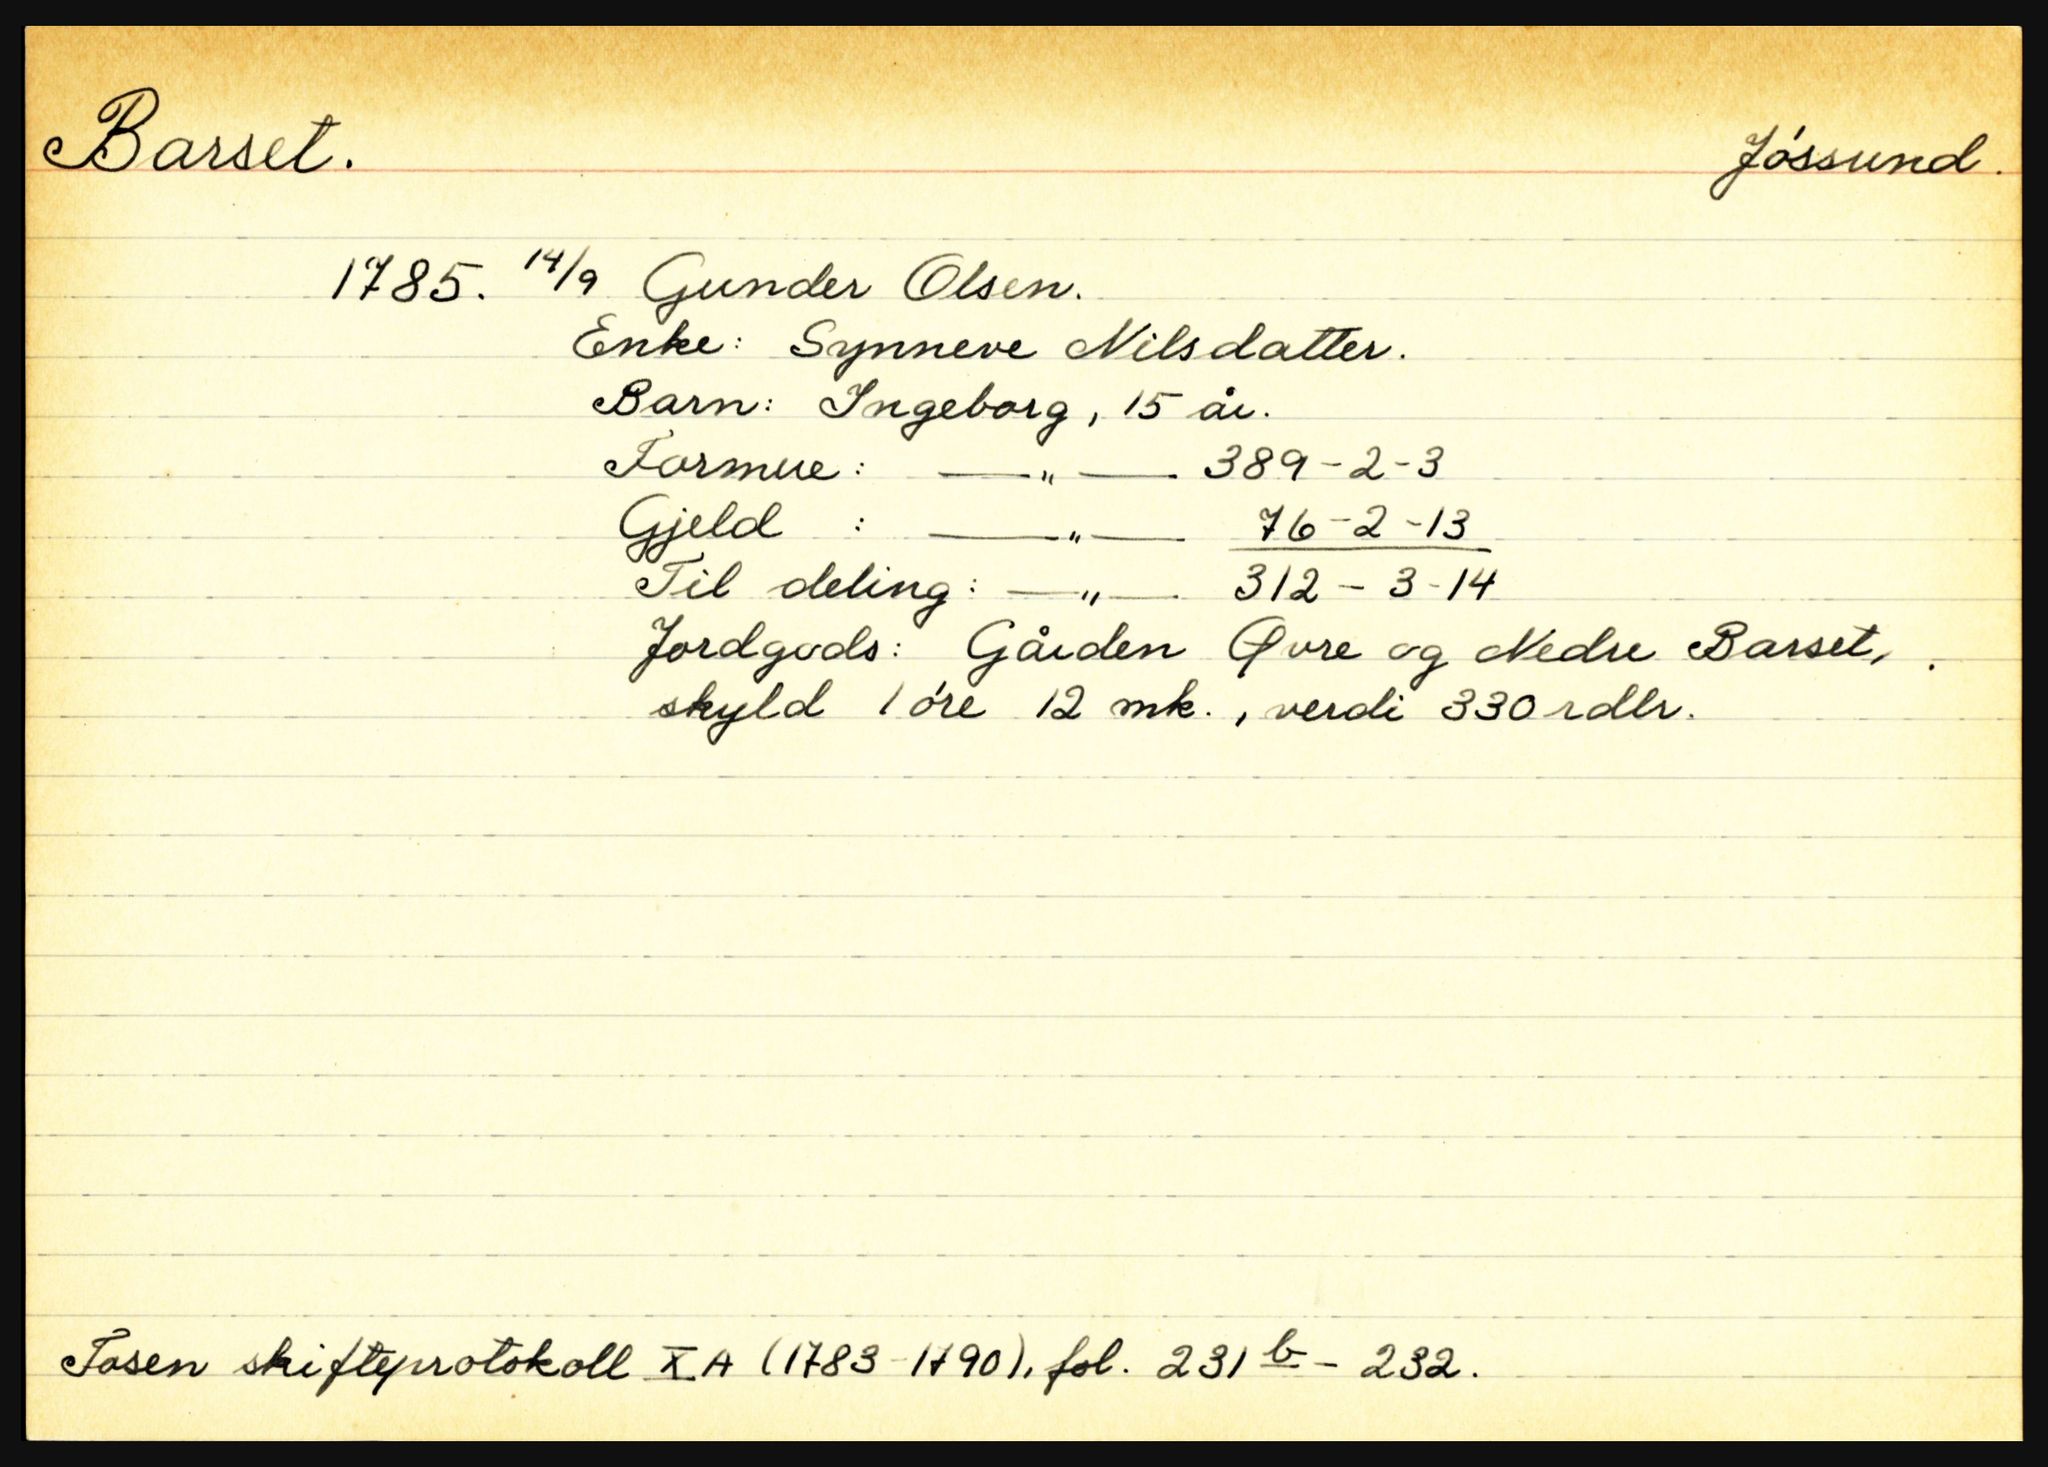 Barset.
Jøssund.
1785. 14/9 Gunder Olsen.
Enke: Synneve Nilsdatter.
Barn: Ingeborg, 15 år.
Formue: —„— 389-2-3
Gjeld : —„— 76-2-13
Til deling: —„— 312-3-14
Jordgods: Gården Øvre og Nedre Barset,
skyld 1 øre 12 mk., verdi 330 rdlr.
Fosen skifteprotokoll X A (1783-1790), fol. 231 b - 232.